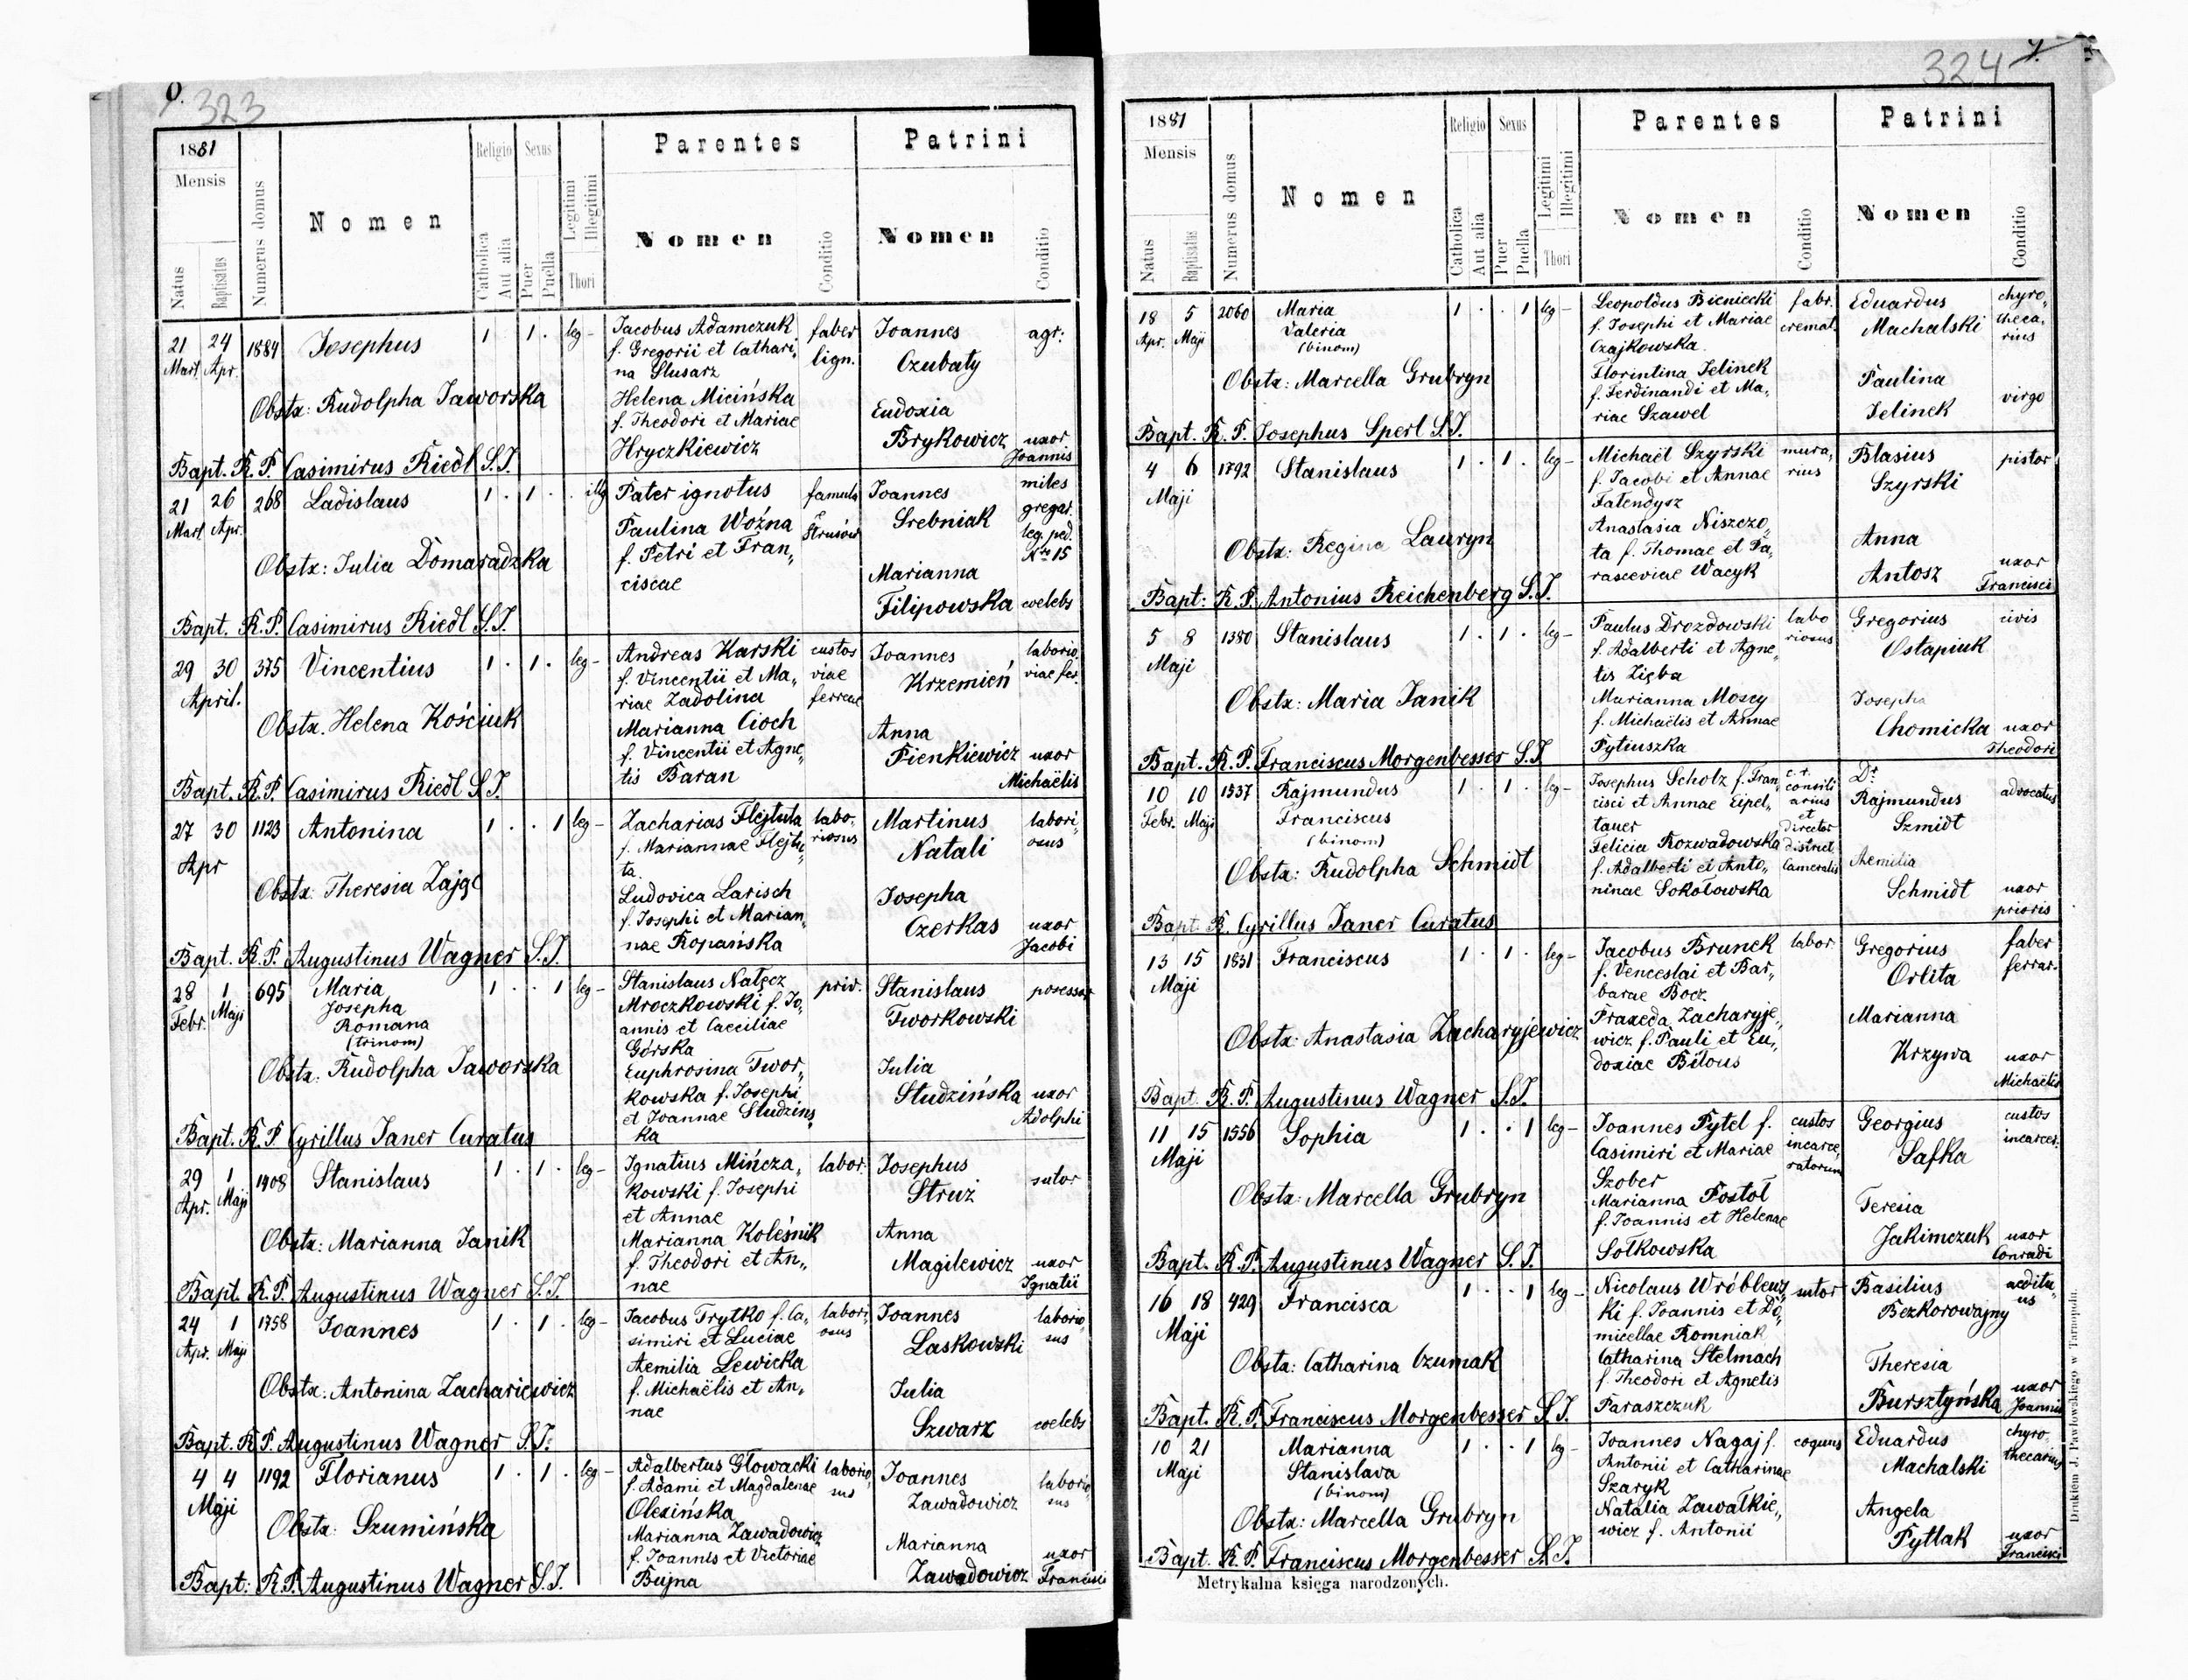 323
1881
Mensis
Natus
Baptisatus
Numerus domus
Nomen
Religio
Catholica
Aut alia
Sexus
Puer
Puella
Legitimi
Illegitimi
Thori
Parentes
Nomen
Conditio
Patrini
Nomen
Conditio
21 Mart. 24 Apr. 1884 Josephus 1 . 1 . leg-
Jacobus Adamczuk
f. Gregorii et Cathari,
na Slusarz
Helena Micińska
f. Theodori et Mariae
Hryczkiewicz
faber
lign.
Joannes agr.
Czubaty
Eudoxia
Brykowicz uxor
Joannis
Obstx: Rudolpha Jaworska
Bapt. R. P. Casimirus Riedl S.J.
21 Mart. 26 Apr. 268 Ladislaus 1 . 1 . . illg
Pater ignotus
Paulina Woźna
f. Petri et Fran,,
ciscae
famula
Strusów
Joannes
Srebniak
miles
gregar.
leg. ped.
Nro 15
Marianna
Filipowska coelebs
Obstx: Julia Domaradzka
Bapt. R.P. Casimirus Riedl S.J.
29 30 April. 375 Vincentius 1 . 1 . leg-
Andreas Karski
f. Vincentii et Ma,,
riae Zadolina
Marianna Cioch
f. Vincentii et Agne,
tis Baran
custos
viae
ferreae
Joannes
Krzemień
laborio,
viae fer.
Anna
Pienkiewicz uxor
Michaëlis
Obstx. Helena Kościuk
Bapt. R.P. Casimirus Riedl S.J.
27 30 Apr 1123 Antonina 1 . . 1 leg-
Zacharias Flejtuta
f. Mariannae Flejtu,
ta.
Ludovica Larisch
f. Josephi et Marian,
nae Ropańska
labo,
riosus
Martinus
Natali
labori,
osus
Josepha
Czerkas uxor
Jacobi
Obstx: Theresia Zając
Bapt. R. P. Augustinus Wagner S.J.
28 Febr. 1 Maji 695 Maria
Josepha
Romana
(trinom)
1 . . 1 leg-
Stanislaus Nałęcz
Mroczkowski f. Jo,
annis et Caeciliae
Górska
Euphrosina Twor,
kowska f. Josephi
et Joannae Studzins,
ka
priv.
Stanislaus posessor
Tworkowski
Julia
Studzińska uxor
Adolphi
Obstx: Rudolpha Jaworska
Bapt. R. P Cyrillus Janer Curatus
29 Apr. 1 Maji 1908 Stanislaus 1 . 1 . leg-
Ignatius Mińcza,
kowski f. Josephi
et Annae
Marianna Koleśnik
f. Theodori et An,,
nae
labor.
Josephus
Struż sutor
Anna
Magilewicz uxor
Ignatii
Obstx: Marianna Janik
Bapt. R.P. Augustinus Wagner S.J.
24 Apr. 1 Maji 1758 Joannes 1 . 1 . leg-
Jacobus Trytko f. Ca,
simiri et Luciae
Aemilia Lewicka
f. Michaëlis et An,
nae
labori,
osus
Joannes
Laskowski
laborio,
sus
Julia
Szwarz coelebs
Obstx: Antonina Zachariewicz
Bapt. R P. Augustinus Wagner S.J.
4 4 Maji 1192 Florianus 1 . 1 . leg-
Adalbertus Głowacki
f. Adami et Magdalenae
Olexińska
Marianna Zawadowicz
f. Joannis et Victoriae
Bujna
laborio,
sus
Joannes
Zawadowicz
laborio,
sus
Marianna
Zawadowicz uxor
Francisci
Obstx: Szumińska
Bapt: R.P. Augustinus Wagner S.J.
324
1881
Mensis
Natus
Baptisatus
Numerus domus
Nomen
Religio
Catholica
Aut alia
Sexus
Puer
Puella
Legitimi
Illegitimi
Thori
Parentes
Nomen
Conditio
Patrini
Nomen
Conditio
18 Apr. 5 Maji 2060 Maria
Valeria
(binom)
1 . . 1 leg-
Leopoldus Bieniecki
f. Josephi et Mariae
Czajkowska
Florintina Jelinek
f. Ferdinandi et Ma,
riae Szawel
fabr.
cremat.
Eduardus
Machalski
chyro,
theca,
rius
Paulina
Jelinek virgo
Obstx: Marcella Grubryn
Bapt. R. P. Josephus Sperl S.J.
4 6 Maji 1792 Stanislaus 1 . 1 . leg-
Michaël Szyrski
f. Jacobi et Annae
Fatendysz
Anastasia Niszczo,
ta f. Thomae et Pa,
rasceviae Wacyk
mura,
rius
Blasius pistor
Szyrski
Anna
Antosz uxor
Francisci
Obstx: Regina Lauryn
Bapt: R. P. Antonius Reichenberg S.J.
5 8 Maji 1380 Stanislaus 1 . 1 . leg-
Paulus Drozdowski
f. Adalberti et Agne,
tis Zięba
Marianna Moscy
f. Michaëlis et Annae
Pytiuszka
labo
riosus
Gregorius civis
Ostapiuk
Josepha
Chomicka uxor
Theodori
Obstx: Maria Janik
Bapt. R. P. Franciscus Morgenbesser S.J
10 Febr. 10 Maji 1537 Rajmundus
Franciscus
(binom)
1 . 1 . leg-
Josephus Scholz f. Fran,
cisci et Annae Eipel,
tauer
Felicia Rozwadowska
f. Adalberti et Anto,
ninae Sokołowska
c. r.
consili
arius
et
director
district.
Cameralis
Dr.
Rajmundus advocatus
Szmidt
Aemilia
Schmidt uxor
prioris
Obstx: Rudolpha Schmidt
Bapt. R. Cyrillus Janer Curatus
13 15 Maji 1831 Franciscus 1 . 1 . leg-
Jacobus Brunek
f. Venceslai et Bar,
barae Bocz.
Praxeda Zacharyje,,
wicz f. Pauli et Eu,,
doxiae Biłous
labor.
Gregorius
Orlita
faber
ferrar.
Marianna
Krzywa uxor
Michaëlis
Obstx: Anastasia Zacharyjewicz
Bapt. R. P. Augustinus Wagner S.J.
11 15 Maji 1556 Sophia 1 . . 1 leg-
Joannes Pytel f.
Casimiri et Mariae
Szober
Marianna Postoł
f. Joannis et Helenae
Sołkowska
custos
incarce,
ratorum
Georgius
Safka
custos
incarcer.
Teresia
Jakimczuk uxor
Conradi
Obstx: Marcella Grubryn
Bapt. R. P. Augustinus Wagner S. J.
16 18 Maji 429 Francisca 1 . . 1 leg-
Nicolaus Wróblews,
ki f. Joannis et Do,
micellae Romniak
Catharina Stelmach
f. Theodori et Agnetis
Paraszczuk
sutor
Basilius
Bezkorowajny
aeditu,
us
Theresia
Bursztyńska uxor
Joannis
Obstx: Catharina Czumak
Bapt. R. P. Franciscus Morgenbesser S.J.
10 21 Maji Marianna
Stanislava
(binom)
1 . . 1 leg-
Joannes Nagaj f.
Antonii et Catharinae
Szaryk
Natalia Zawałkie,,
wicz f. Antonii
coquus
Eduardus
Machalski
chyro,
thecarius
Angela
Pytlak uxor
Francisci
Obstx: Marcella Grubryn
Bapt. R. P. Franciscus Morgenbesser S.J.
Metrykalna księga narodzonych.
Drukiem J. Pawłowskiego w Tarnopolu.